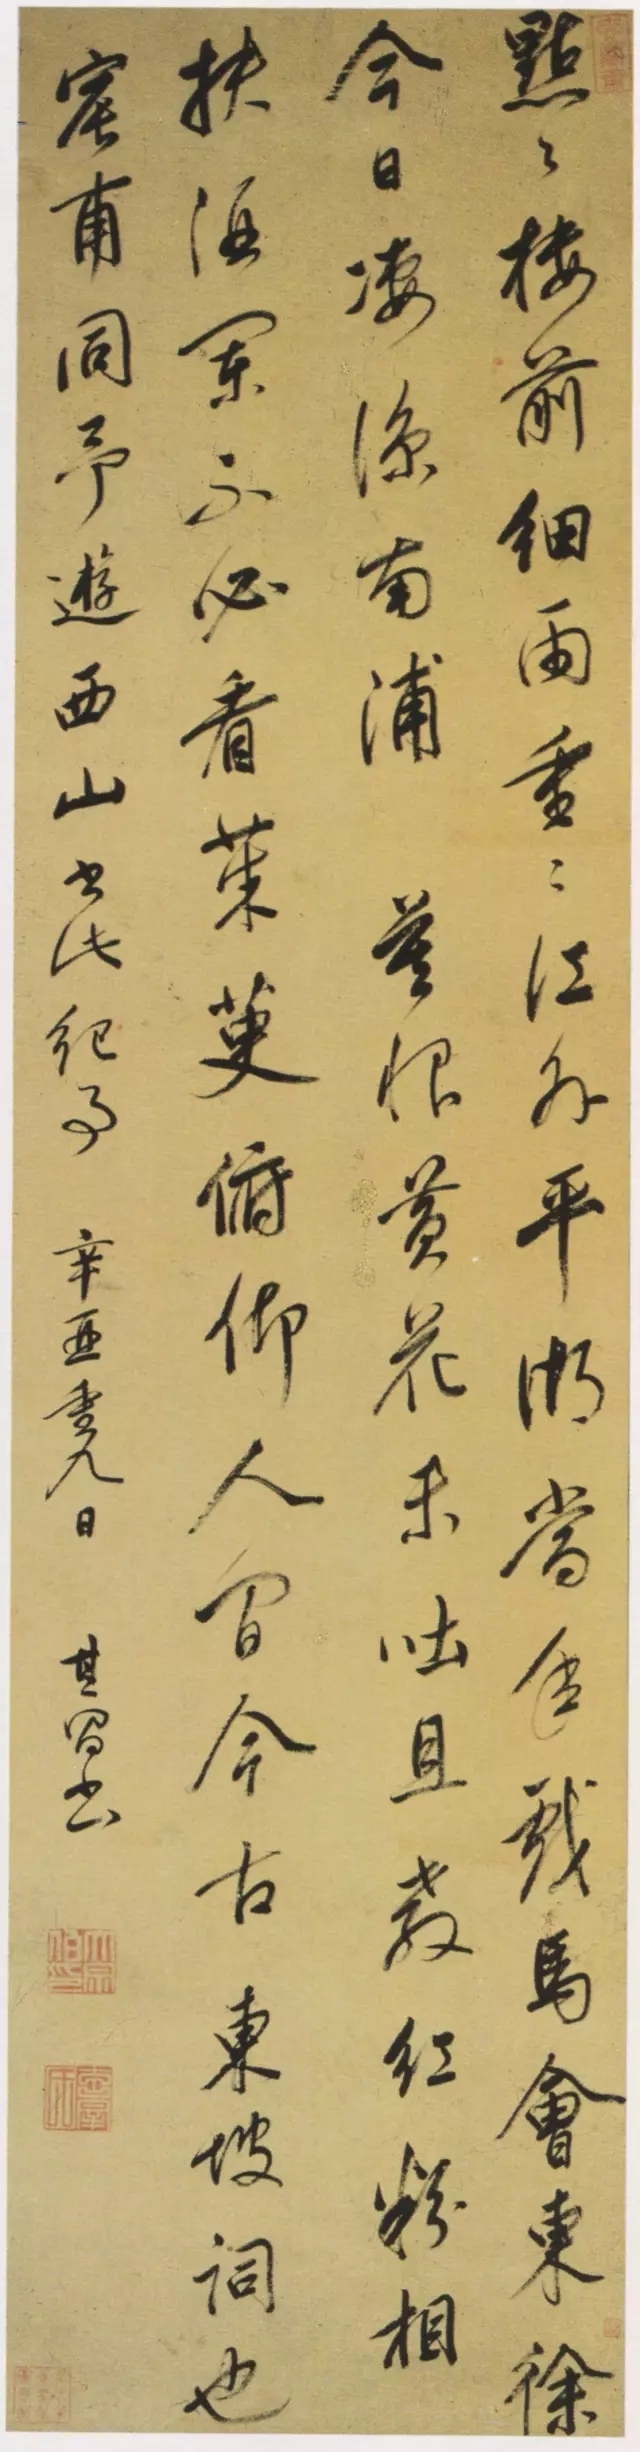 點々樓前細雨重々江外平湖當年戲馬會東徐
今日凄涼南浦 莫恨黃花未吐且教紅粉相
扶酒闌不必看茱萸俯仰人間今古東坡詞也
宸甫同予遊西山書此紀事 辛亥重九日 其昌書